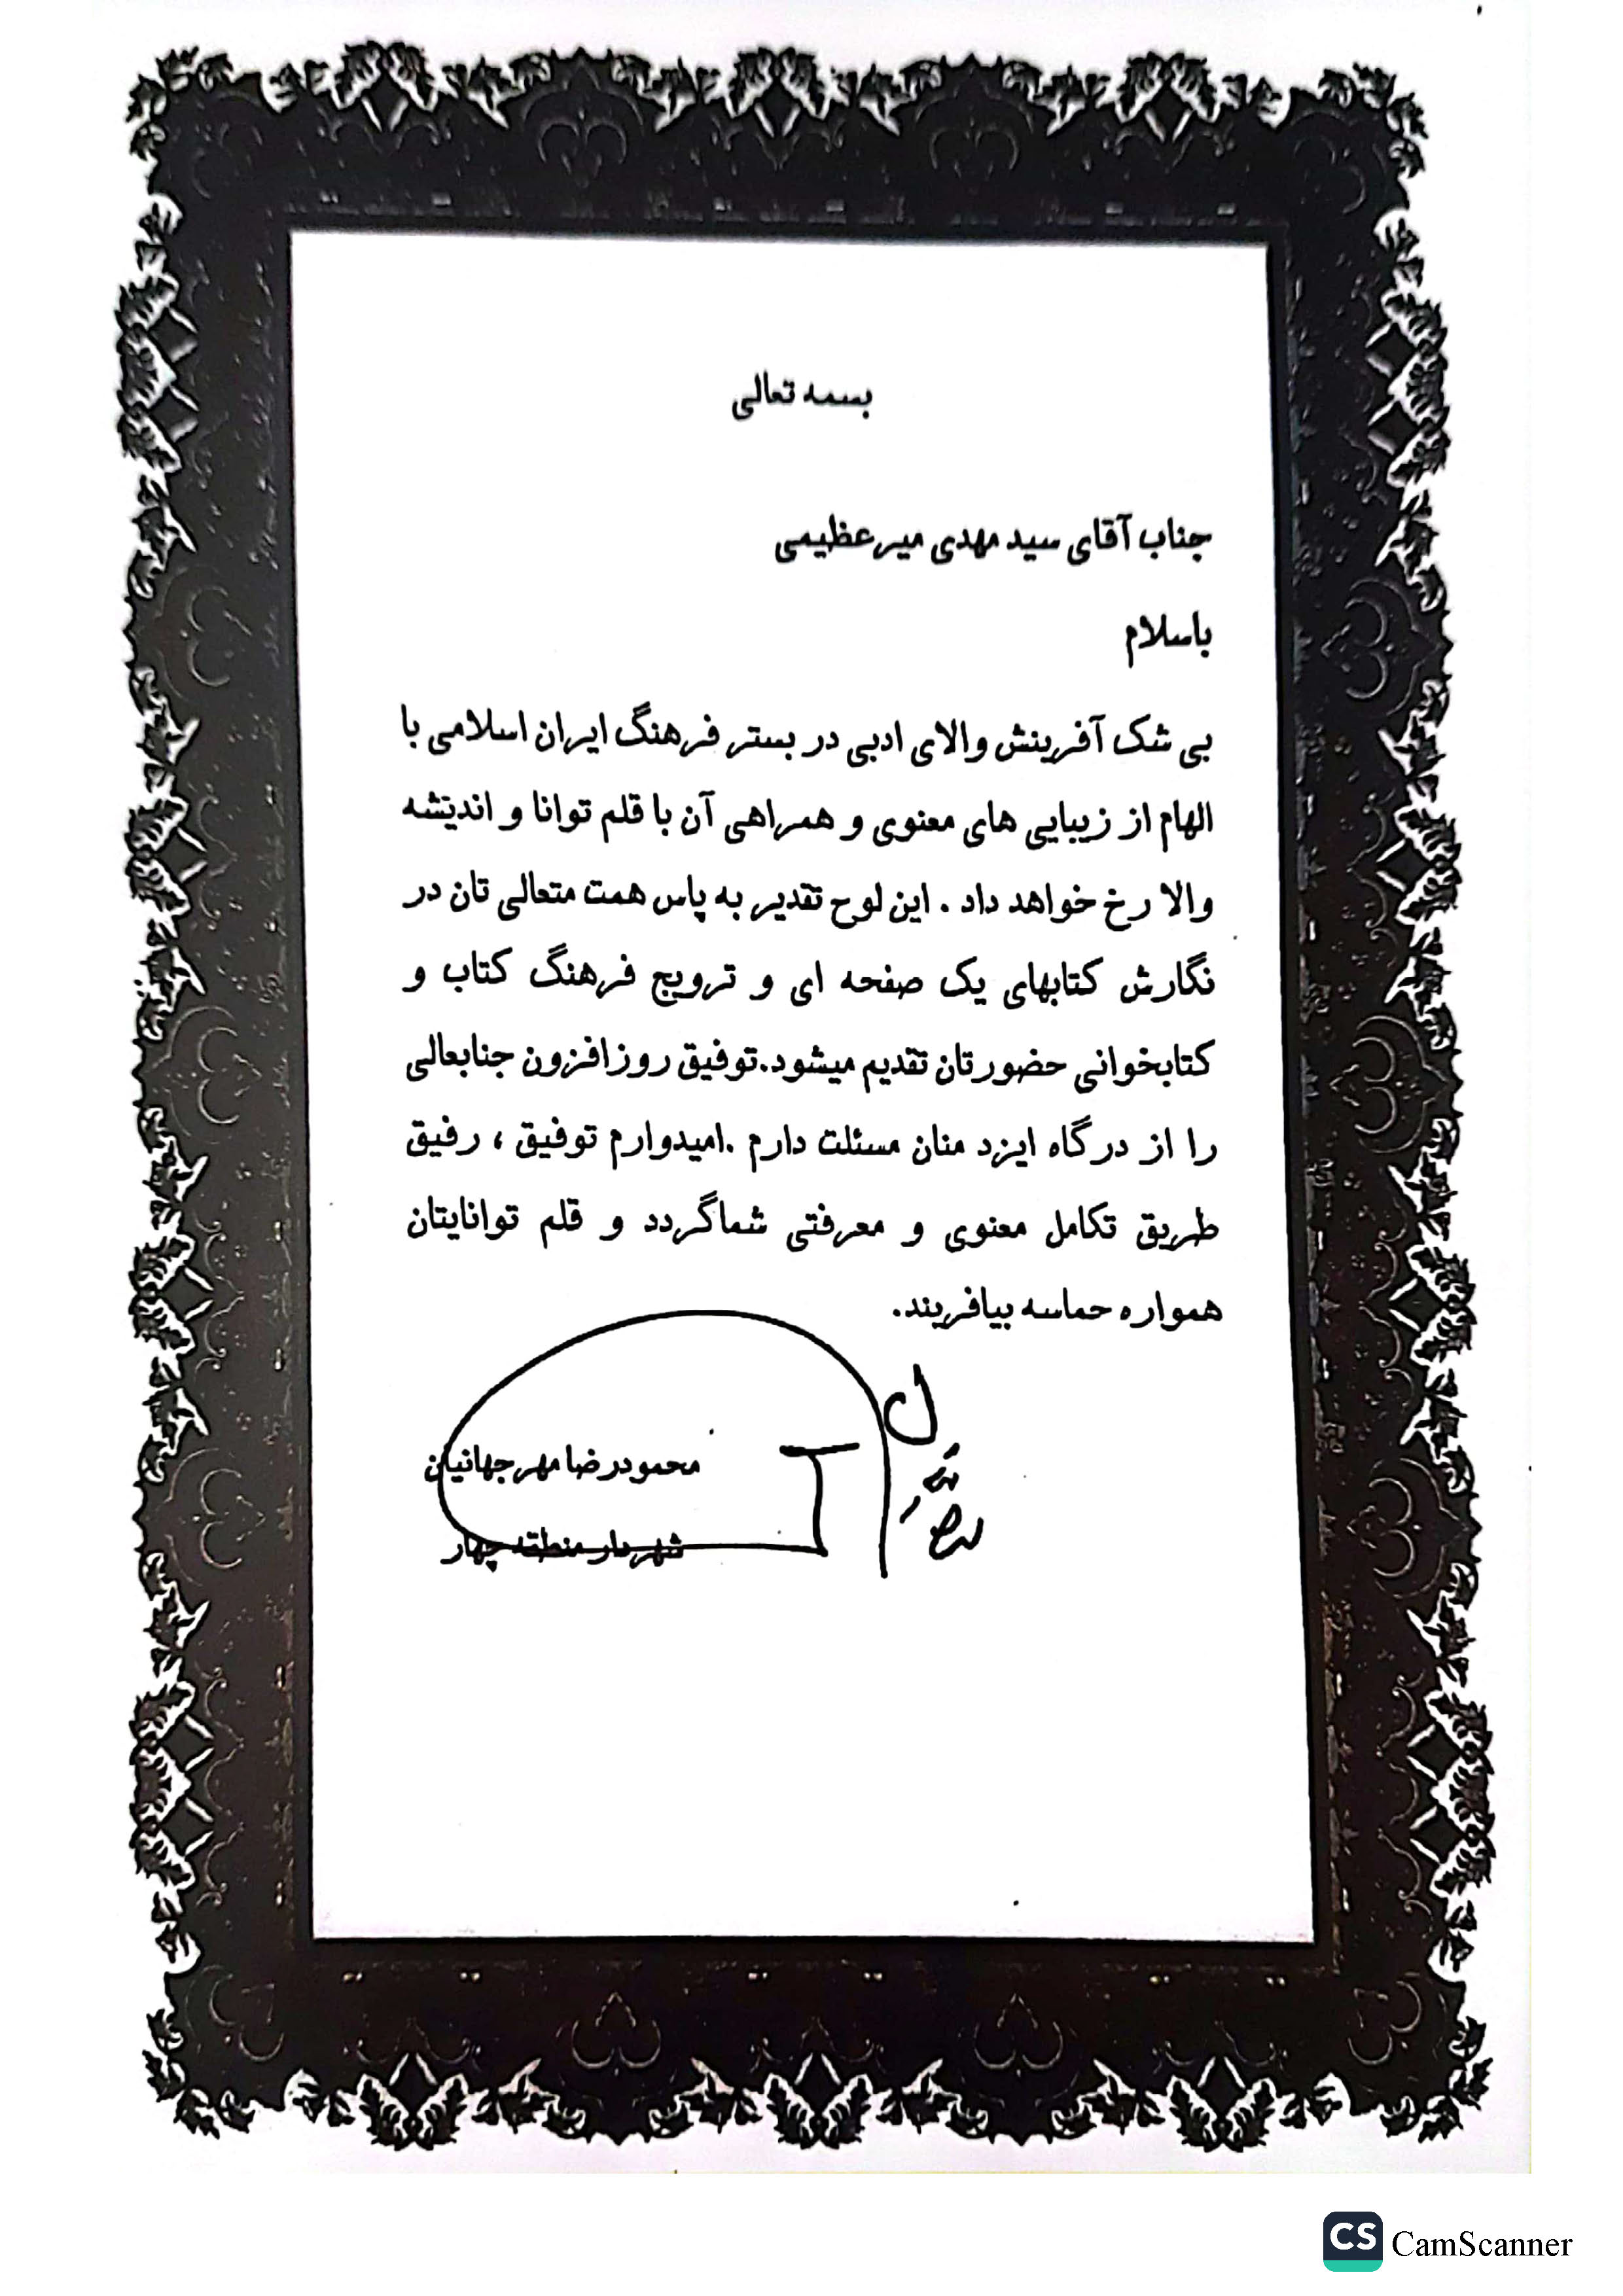 بسمه تعالی
جناب آقای سید مهدی میرعظیمی
باسلام
بی شک آفرینش والای ادبی در بستر فرهنگ ایران اسلامی با
الهام از زیبایی های معنوی و همراهی آن با قلم توانا و اندیشه
والا رخ خواهد داد . این لوح تقدیر به پاس همت متعالی تان در
نگارش کتابهای یک صفحه ای و ترویج فرهنگ کتاب و
کتابخوانی حضورتان تقدیم میشود.توفیق روزافزون جنابعالی
را از درگاه ایزد منان مسئلت دارم .امیدوارم توفیق ، رفیق
طریق تکامل معنوی و معرفتی شماگردد و قلم توانایتان
همواره حماسه بیافریند.
محمودرضا مهرجهانیان
شهردار منطقه چهار
CS CamScanner